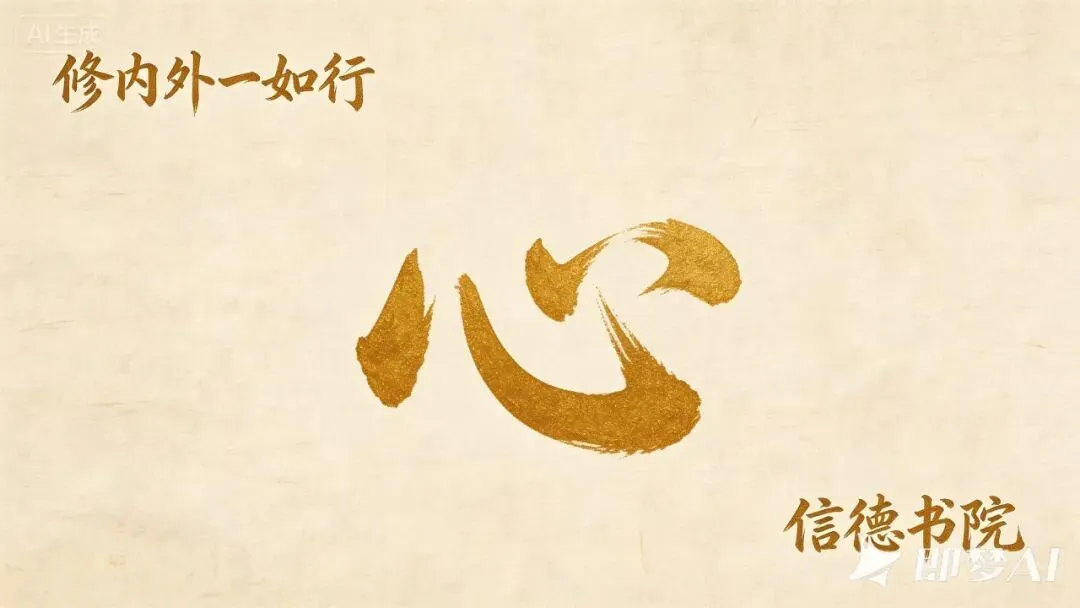 AI生成
修内外一如行
心
信德书院
即梦AI